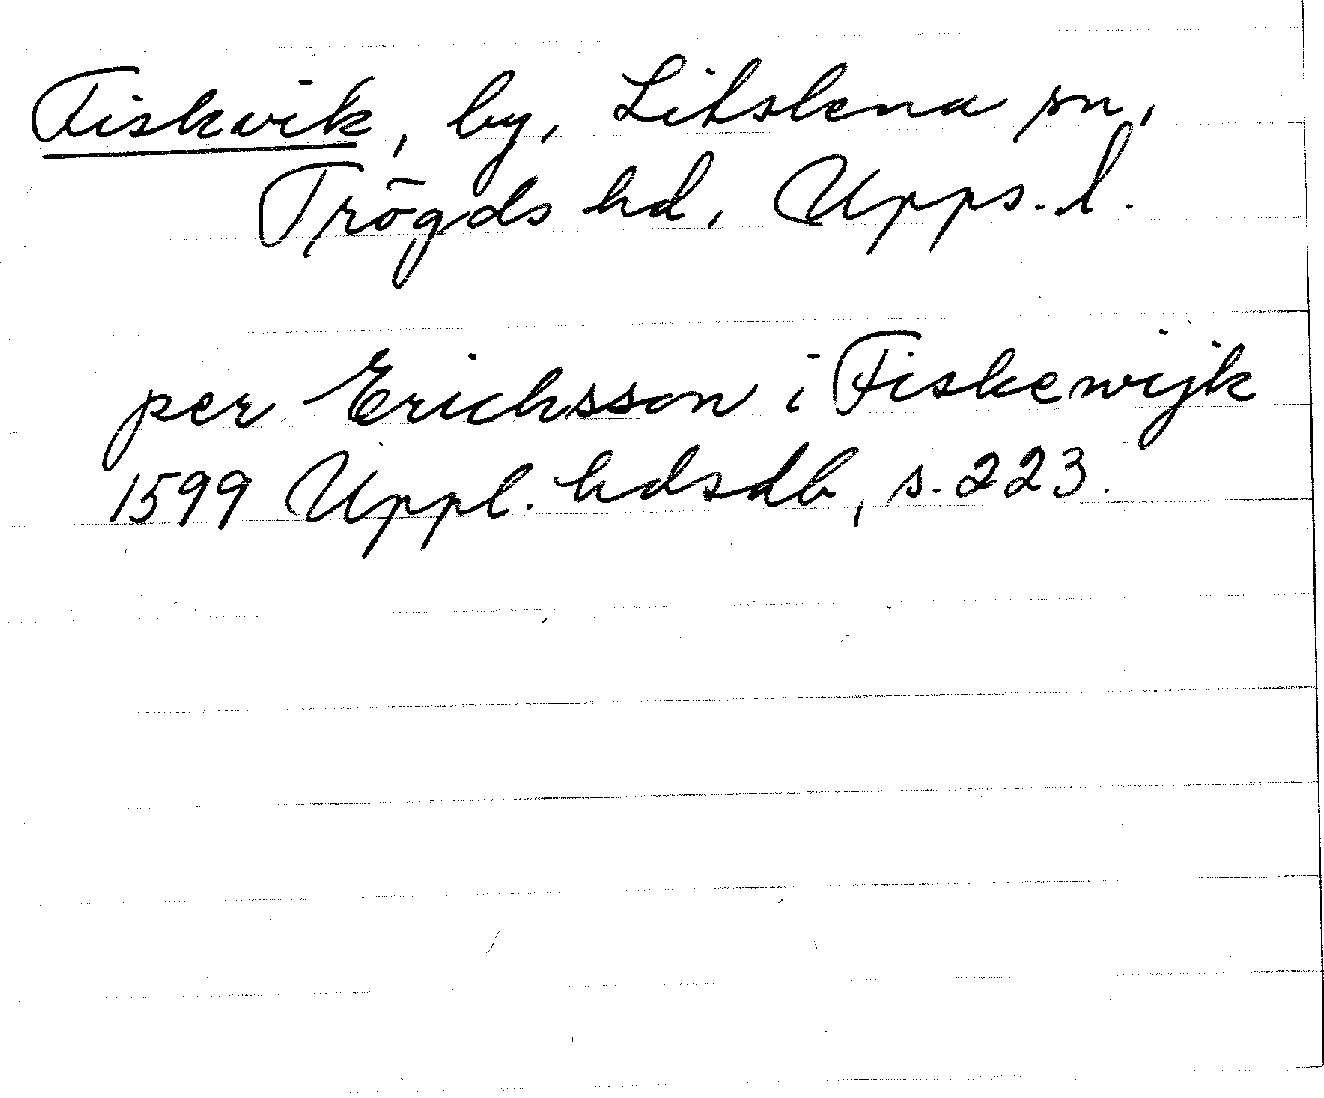 Fiskvik, by, Litslena sn,
Trögds hd, Upps. l.
per Erichsson i Fiskewijk
1599 Uppl. hdsdb, s. 223.